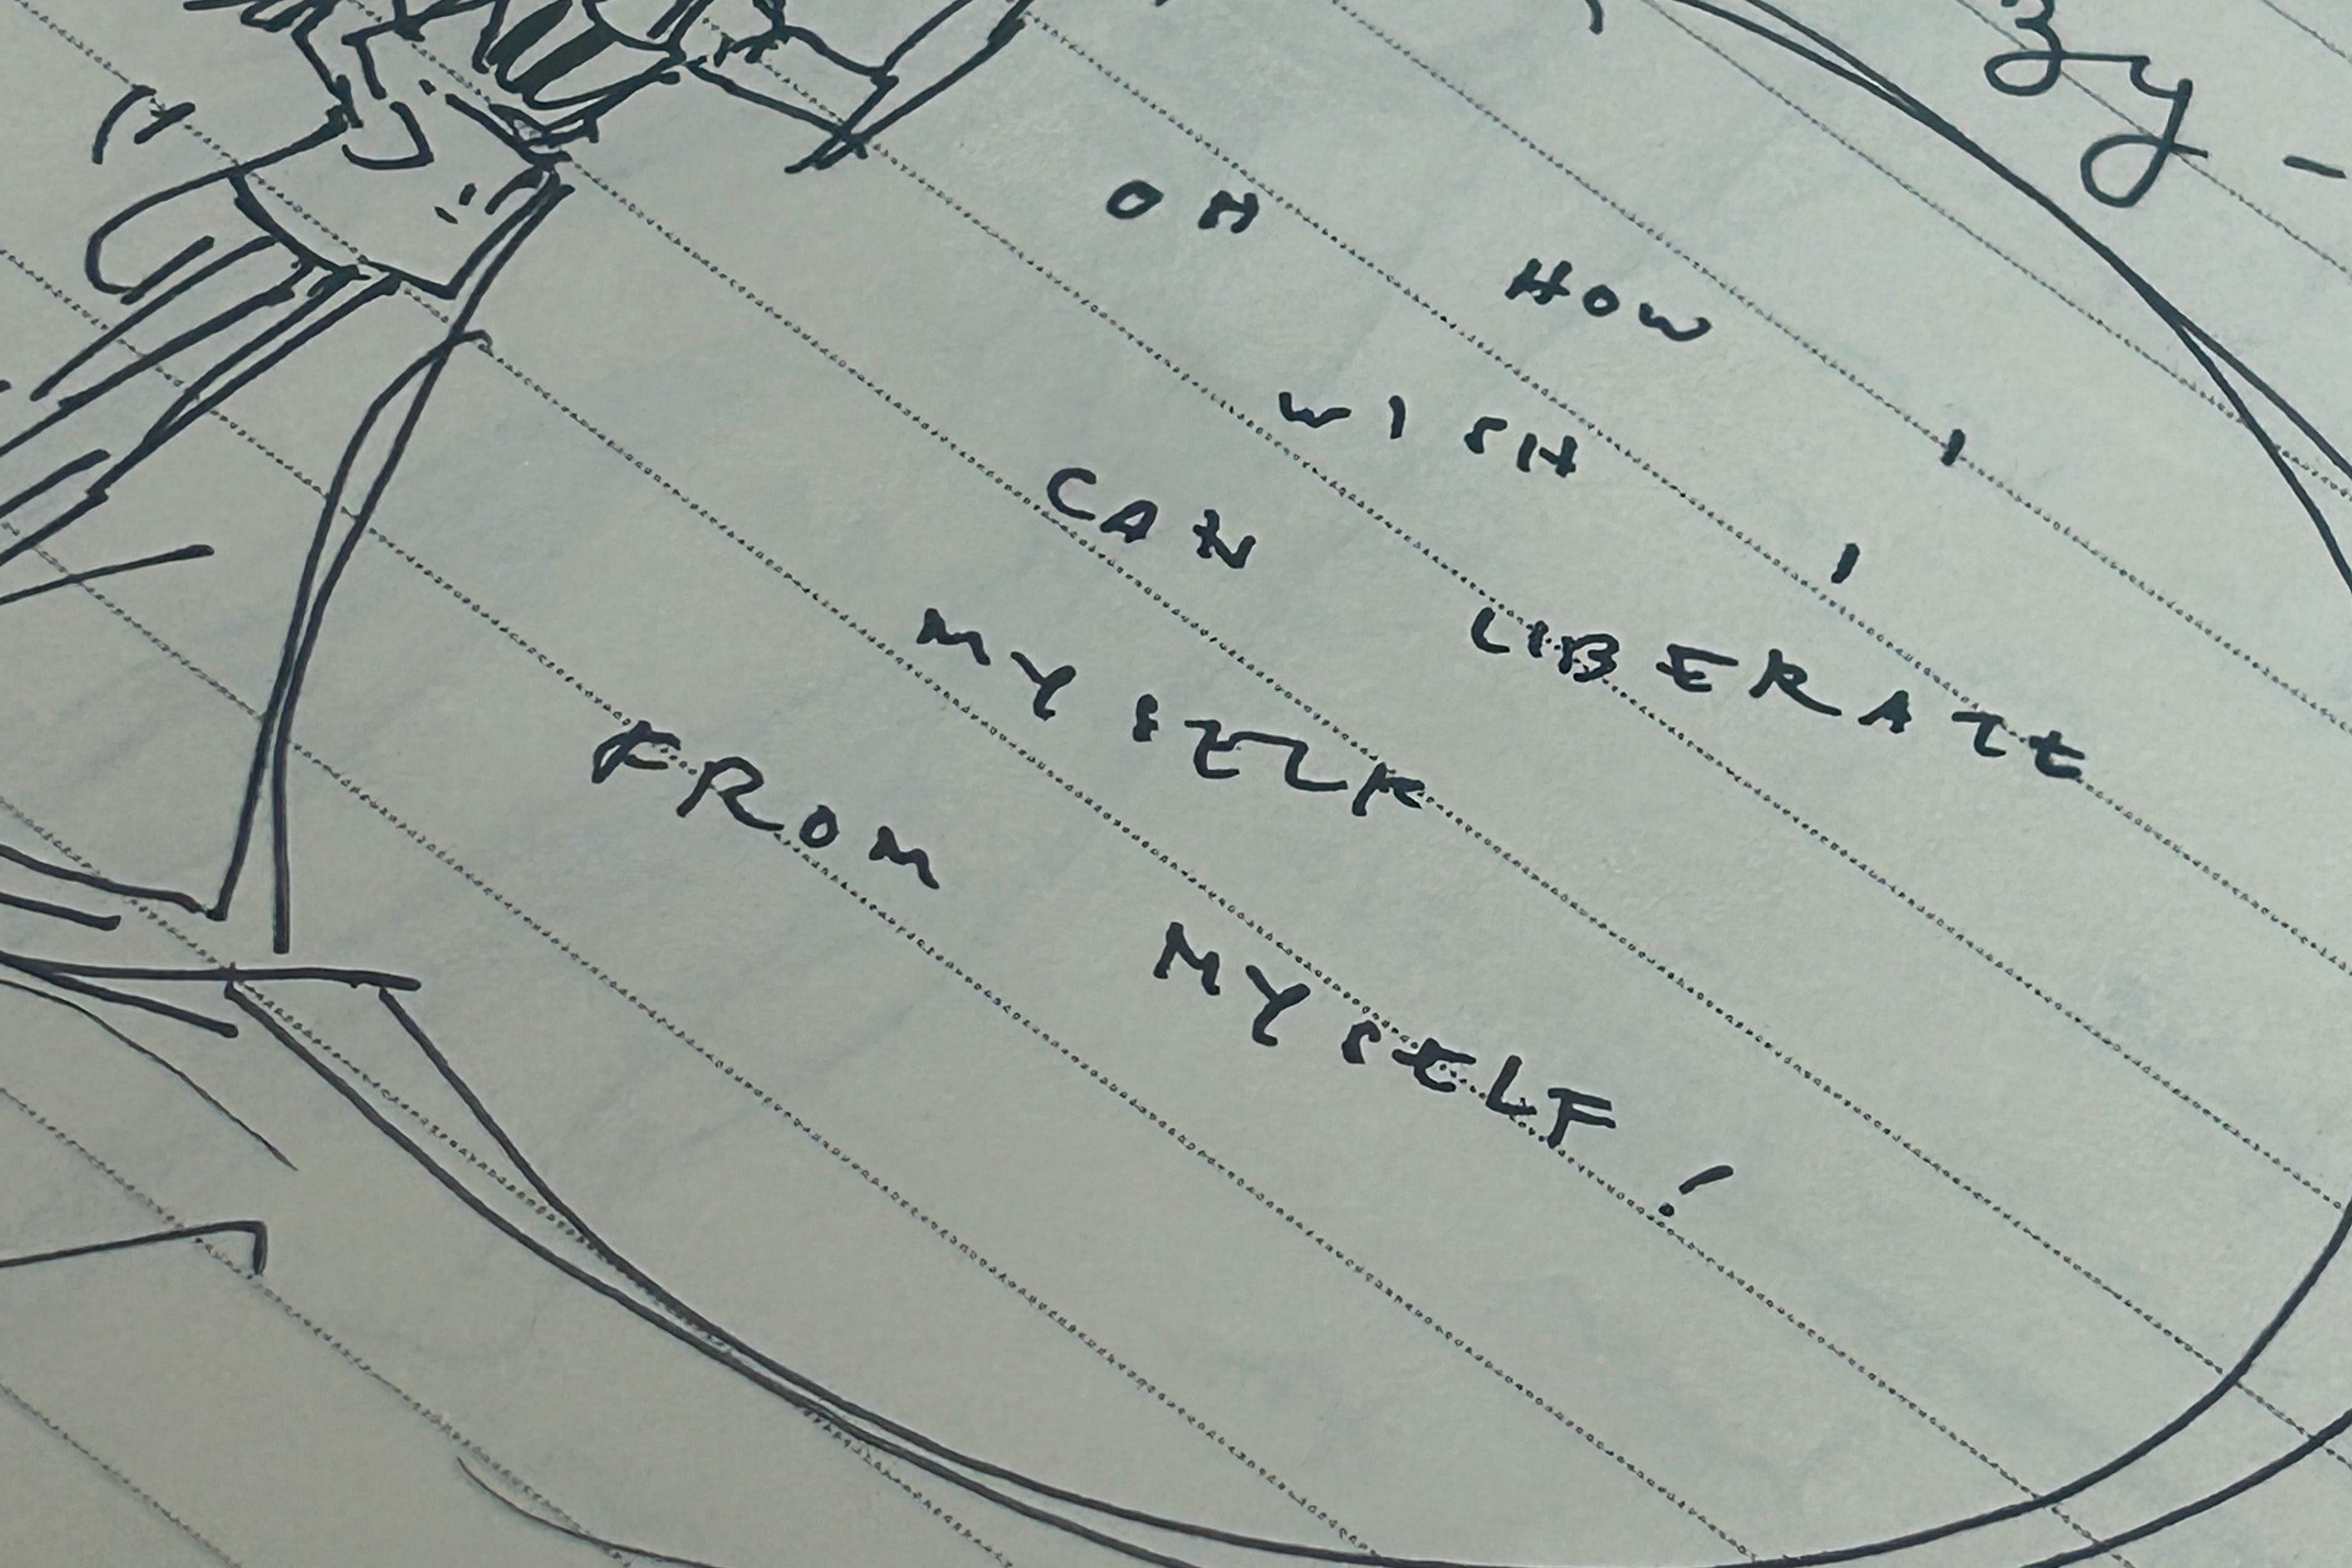 zy -
OH HOW I
WISH I
CAN LIBERATE
MYSELF
FROM MYSELF!